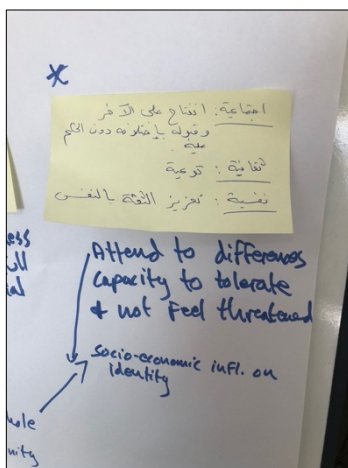 *
اجتماعية : انفتاح على الآخر
وقبوله بإختلافه دون الحكم
عليه .
ثقافية : توعية
نفسية : تعزيز الثقة بالنفس
Attend to differences
capacity to tolerate
+ not feel threatened
socio-economic infl. on
identity